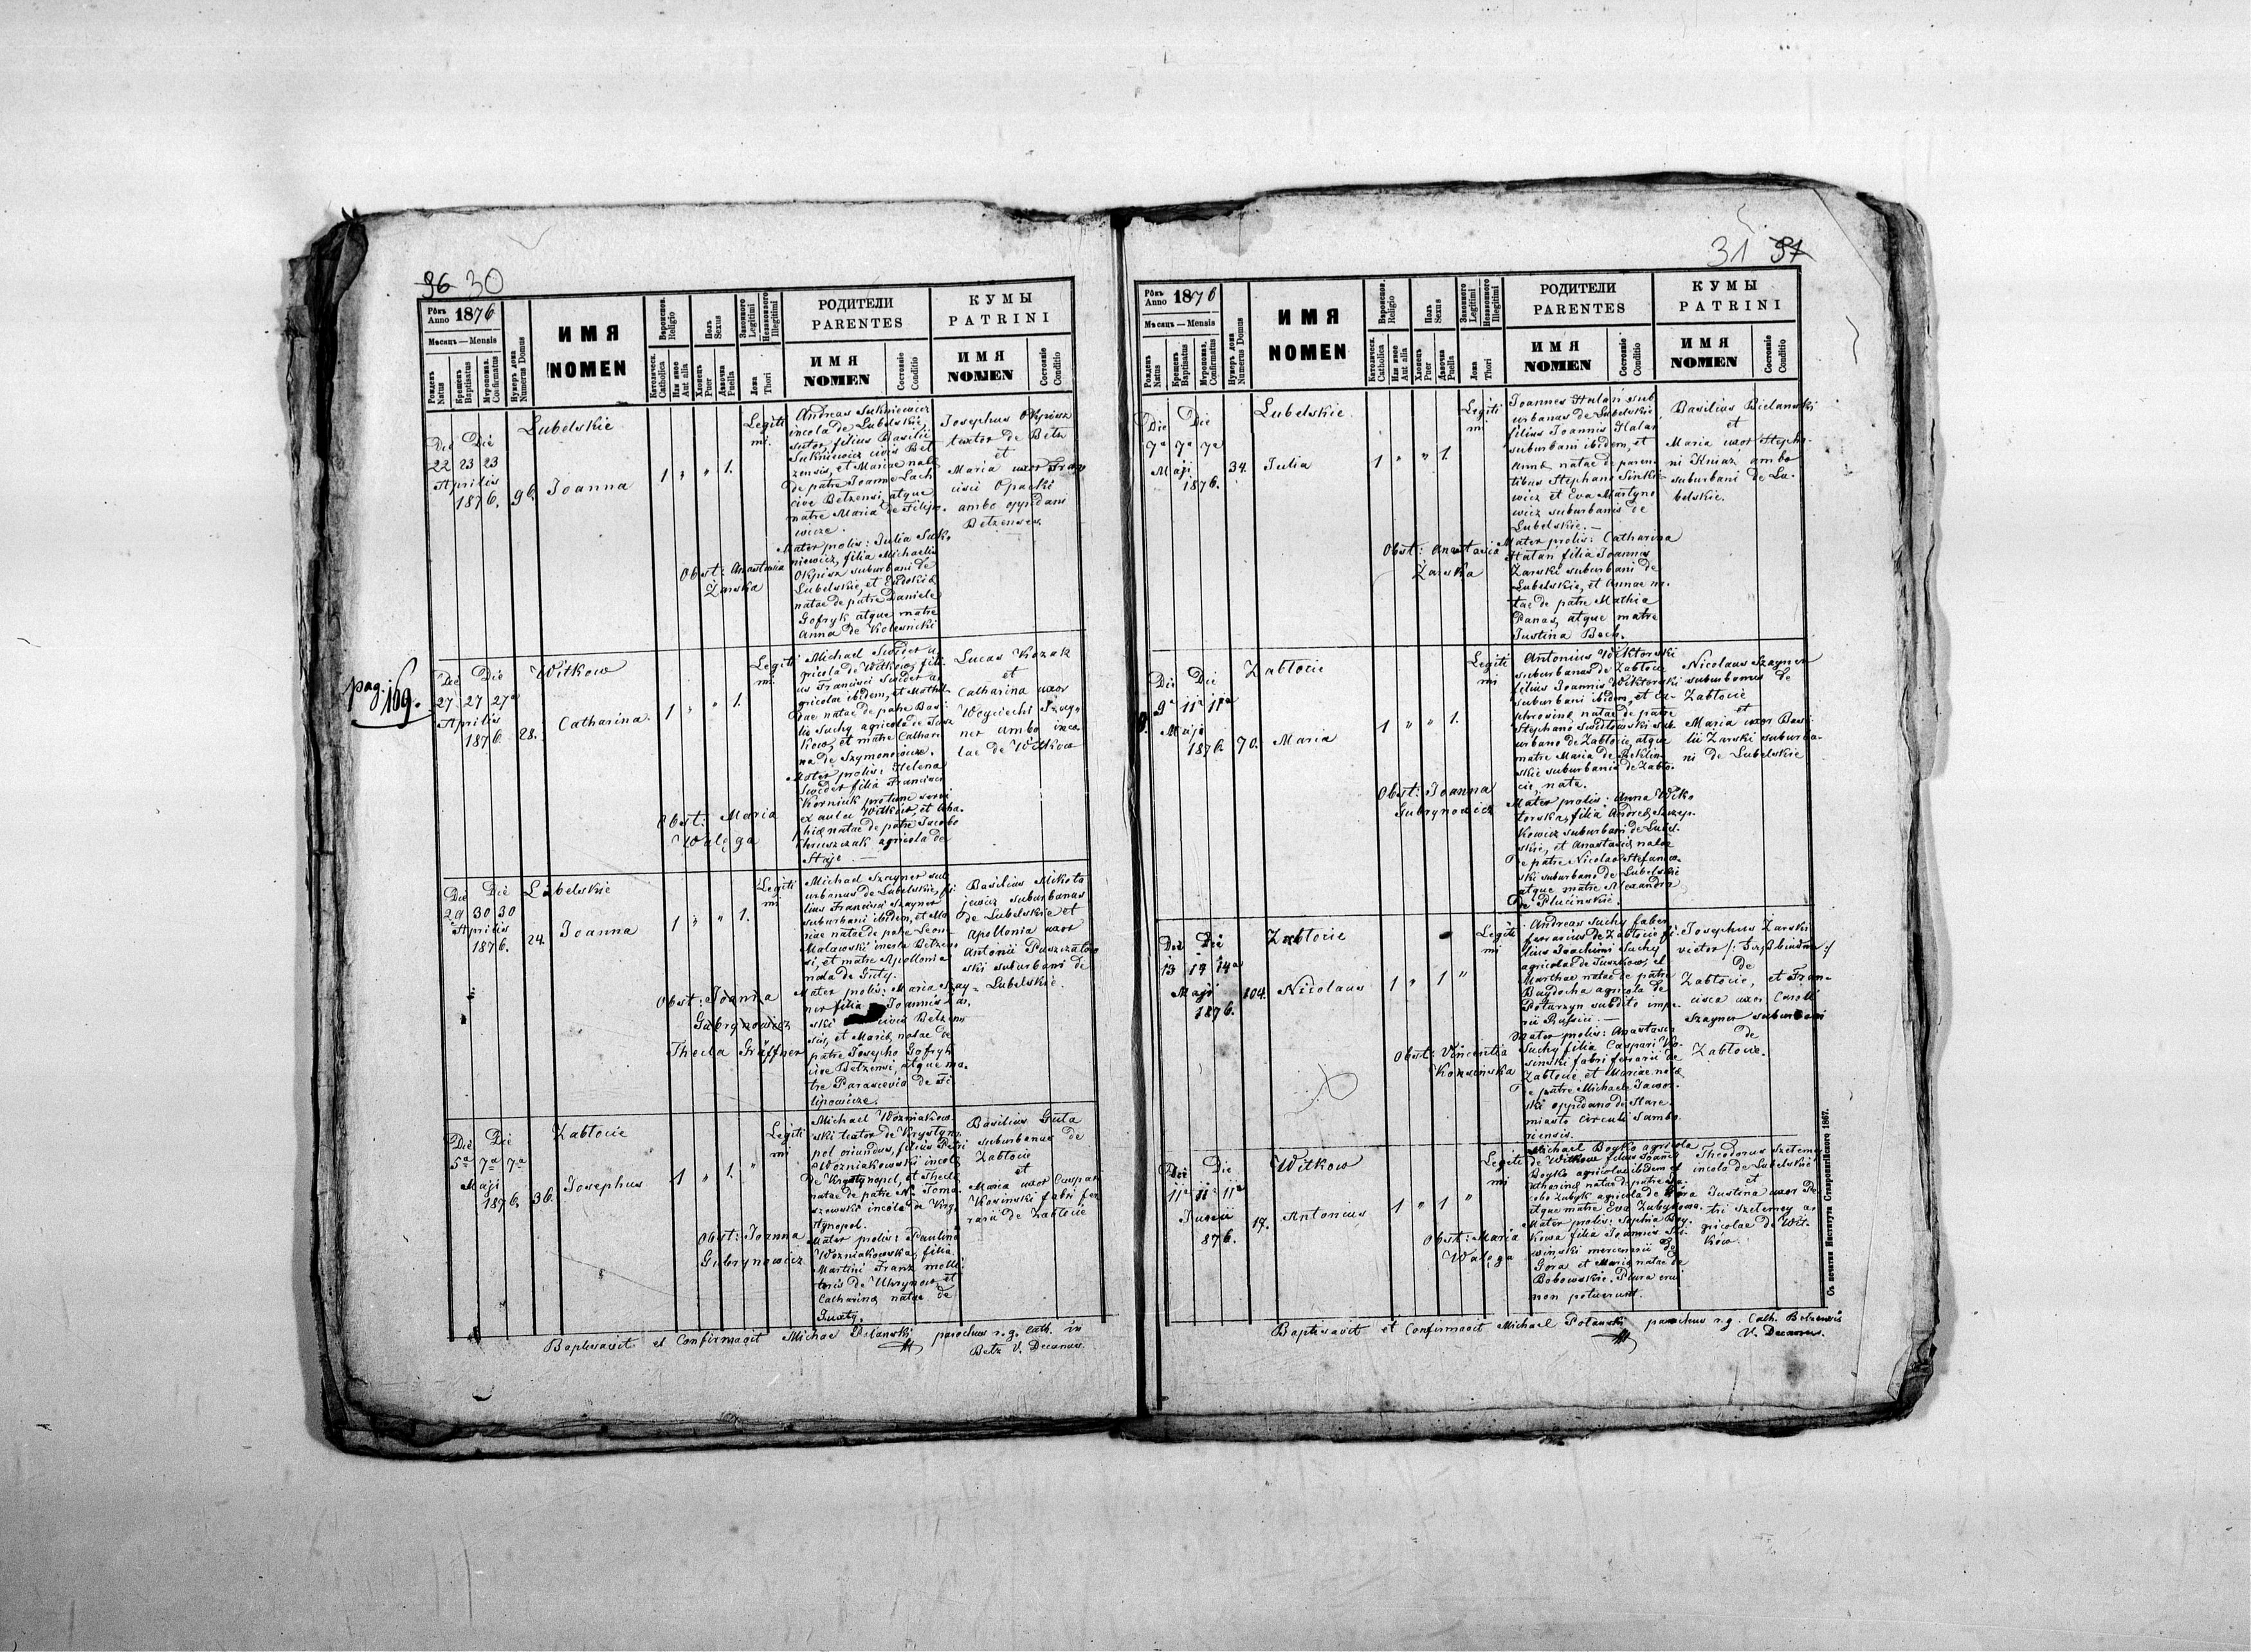 96 30
Рôкъ
Anno 1876
Мѣсяцъ — Mensis
Рожденъ
Natus
Крещенъ
Baptisatus
Мѵропомаз.
Confirmatus
Нумеръ дома
Numerus Domus
ИМЯ
NOMEN
Вѣроиспов.
Religio
Католическ.
Catholica
Или иное
Aut alia
Полъ
Sexus
Хлопецъ
Puer
Дѣвочка
Puella
Законного
Legitimi
Незаконного
Illegitimi
Ложа
Thori
РОДИТЕЛИ
PARENTES
ИМЯ
NOMEN
Состояніе
Conditio
КУМЫ
PATRINI
ИМЯ
NOMEN
Состояніе
Conditio
Lubelskie
Die Die
22 23 23
Aprilis
1876.
96.
Joanna
1 " " 1.
Legiti
mi.
Obst: Anastasia
Żarska
Andreas Sukniewicz
incola de Lubelskie,
sutor, filius Basilii
Sukniewicz civis Bel
zensis, et Mariae natae
de patre Joanne Lach
cive Belzensi, atque
matre Maria de Filipo-
wicze.
Mater prolis: Julia Suk-
niewicz, filia Michaelis
Okpisz suburbani de
Lubelskie, et Eudokiae
natae de patre Daniele
Gofryk atque matre
Anna de Kolesnicki
Josephus Okpisz
textor de Bełz
et
Maria uxor Fran
cisci Opacki
ambo oppidani
Belzenses
pag. 169.
Witkow
Die Die
27 27 27a
Aprilis
1876.
28.
Catharina.
1 " " 1.
Legiti
mi.
Obst: Maria
Walęga
Michael Swider a
gricola de Witkow, fili
us Francisci Swider a
gricolae ibidem, et Mathil
dae natae de patre Basi
lio Suchy agricola de Tusz
kow, et matre Cathari
na de Szymonowicze.
Mater prolis: Helena
Swider filia Francisci
Korniuk pro tunc servi
ex aula Witkow, et Aha
hiae natae de patre Jacobo
Chruszczak agricola de
Staje —
Lucas Kozak
et
Catharina uxor
Woyciechi Szay-
ner ambo inco-
lae de Witkow
Lubelskie
Die Die
29 30 30
Aprilis
1876.
24.
Joanna
1 " " 1.
Legiti
mi
Obst: Joanna
Gubrynowicz
Thecla Gräffner
Michael Szayner sub
urbanus de Lubelskie, fi
lius Francisci Szayner
suburbani ibidem, et Ma
riae natae de patre Leon
Malawski incola Belzen
si, et matre Apollonia
nata de Guty.
Mater prolis: Maria Szay-
ner filia Joannis Żar
ski civis Belzen
sis, et Mariae, natae de
patre Josepho Gofryk
cive Belzensi, atque ma-
tre Parascevia de Fi
lipowicze.
Basilius Mikoła
jewicz suburbanus
de Lubelskie et
Apollonia uxor
Antonii Puszczatow
ski suburbani de
Lubelskie.
Zabłocie
Die Die
5a 7a 7a
Maji
1876.
36.
Josephus
1 " 1. "
Legiti
mi
Obst: Joanna
Gubrynowicz
Michael Wozniakow
ski textor de Krystyno
pol oriundus, filius Petri
Wozniakowski incolae
de Krystynopol, et Theclae
natae de patre N. Toma
szewski incola de Kry-
stynopol.
Mater prolis: Paulina
Wozniakowska, filia
Martini Franz moli
toris de Uhrynow et
Catharinae natae de
Guxty.
Basilius Guta
suburbanus de
Zabłocie
et
Maria uxor Caspari
Kosinski fabri fer
rarii de Zabłocie
Baptisavit et Confirmavit Michael Polanski parochus r. g. Cath. in
Bełz V. Decanus.
31 97
Рôкъ
Anno 1876
Мѣсяцъ — Mensis
Рожденъ
Natus
Крещенъ
Baptisatus
Мѵропомаз.
Confirmatus
Нумеръ дома
Numerus Domus
ИМЯ
NOMEN
Вѣроиспов.
Religio
Католическ.
Catholica
Или иное
Aut alia
Полъ
Sexus
Хлопецъ
Puer
Дѣвочка
Puella
Законного
Legitimi
Незаконного
Illegitimi
Ложа
Thori
РОДИТЕЛИ
PARENTES
ИМЯ
NOMEN
Состояніе
Conditio
КУМЫ
PATRINI
ИМЯ
NOMEN
Состояніе
Conditio
Lubelskie.
Die Die
7a 7a 7a
Maji
1876.
34.
Julia
1 " " 1.
Legiti
mi.
Obst: Anastasia
Żarska
Joannes Hałan sub
urbanus de Lubelskie
filius Joannis Hałan
suburbani ibidem, et
Annae natae de paren-
tibus Stephano Sinkie-
wicz et Eva Martyno
wicz suburbanis de
Lubelskie. —
Mater prolis: Catharina
Hałan filia Joannis
Żarski suburbani de
Lubelskie, et Annae na-
tae de patre Mathia
Panas, atque matre
Justina Bech.
Basilius Bielanski
et
Maria uxor Stepha-
ni Kniaz, ambo
suburbani de Lu-
belskie.
Zabłocie
Die Die
9a 11a 11a
Maji
1876.
70.
Maria
1 " " 1.
Legiti
mi
Obst: Joanna
Gubrynowicz
Antonius Wiktorski
suburbanus de Zabłocie
filius Joannis Wiktorski
suburbani ibidem, et Eu-
phrosinae natae de patre
Stephano Swidłowski sub-
urbano de Zabłocie atque
matre Maria de Reklin-
skie suburbanis de Zabło-
cie, nata.
Mater prolis: Anna Wik-
torska, filia Andreae Szczep-
kowicz suburbani de Lubel-
skie, et Anastasiae natae
de patre Nicolao Stefanow-
ski suburbano de Lubelskie
atque matre Alexandra
de Plucinskie.
Nicolaus Szayner
suburbanus de
Zabłocie
et
Maria uxor Basi
lii Żarski suburba-
ni de Lubelskie
Zabłocie
Die Die
13 14 14a
Maji
1876.
104.
Nicolaus
1 " 1 "
Legiti
mi
Obst: Vincentia
Kosinska
Andreas Suchy faber
ferrarius de Zabłocie fi-
lius Joachimi Suchy
agricolae de Tuszkow, et
Marthae natae de patre
Baydocha agricola de
Poturzyn subdito impe-
rii Russii. —
Mater prolis: Anastasia
Suchy filia Caspari Ko-
sinski fabri ferrarii de
Zabłocie, et Mariae natae
de patre Michaele Jawor-
ski oppidano de Stare-
miasto Circuli Sambo-
riensis.
Josephus Żarski
victor /: Faßbinder :/
de
Zabłocie, et Fran-
cisca uxor Caroli
Szayner suburbani
de
Zabłocie.
Witkow
Die Die
11a 11a 11a
Junii
876.
17.
Antonius
1 " 1 "
Legiti
mi
Obst: Maria
Walęga
Michael Boyko agricola
de Witkow filius Joannis
Boyko agricolae ibidem et
Catharinae natae de patre Ja-
cobo Zubyk agricola de Góra
atque matre Eva Zubykowa.
Mater prolis: Sophia Boy-
kowa filia Joannis Sa-
winski mercenarii de
Gora et Mariae natae de
Bobowskie. Plura erui
non potuerunt.
Theodorus Szetemey
incola de Lubelskie
et
Justina uxor Pe-
tri Szetemey a-
gricolae de Wit-
ków.
Baptisavit et Confirmavit Michael Polanski parochus r. g. Cath. Belzensis
V. Decanus.
Съ печатни Института Ставропигійского 1867.